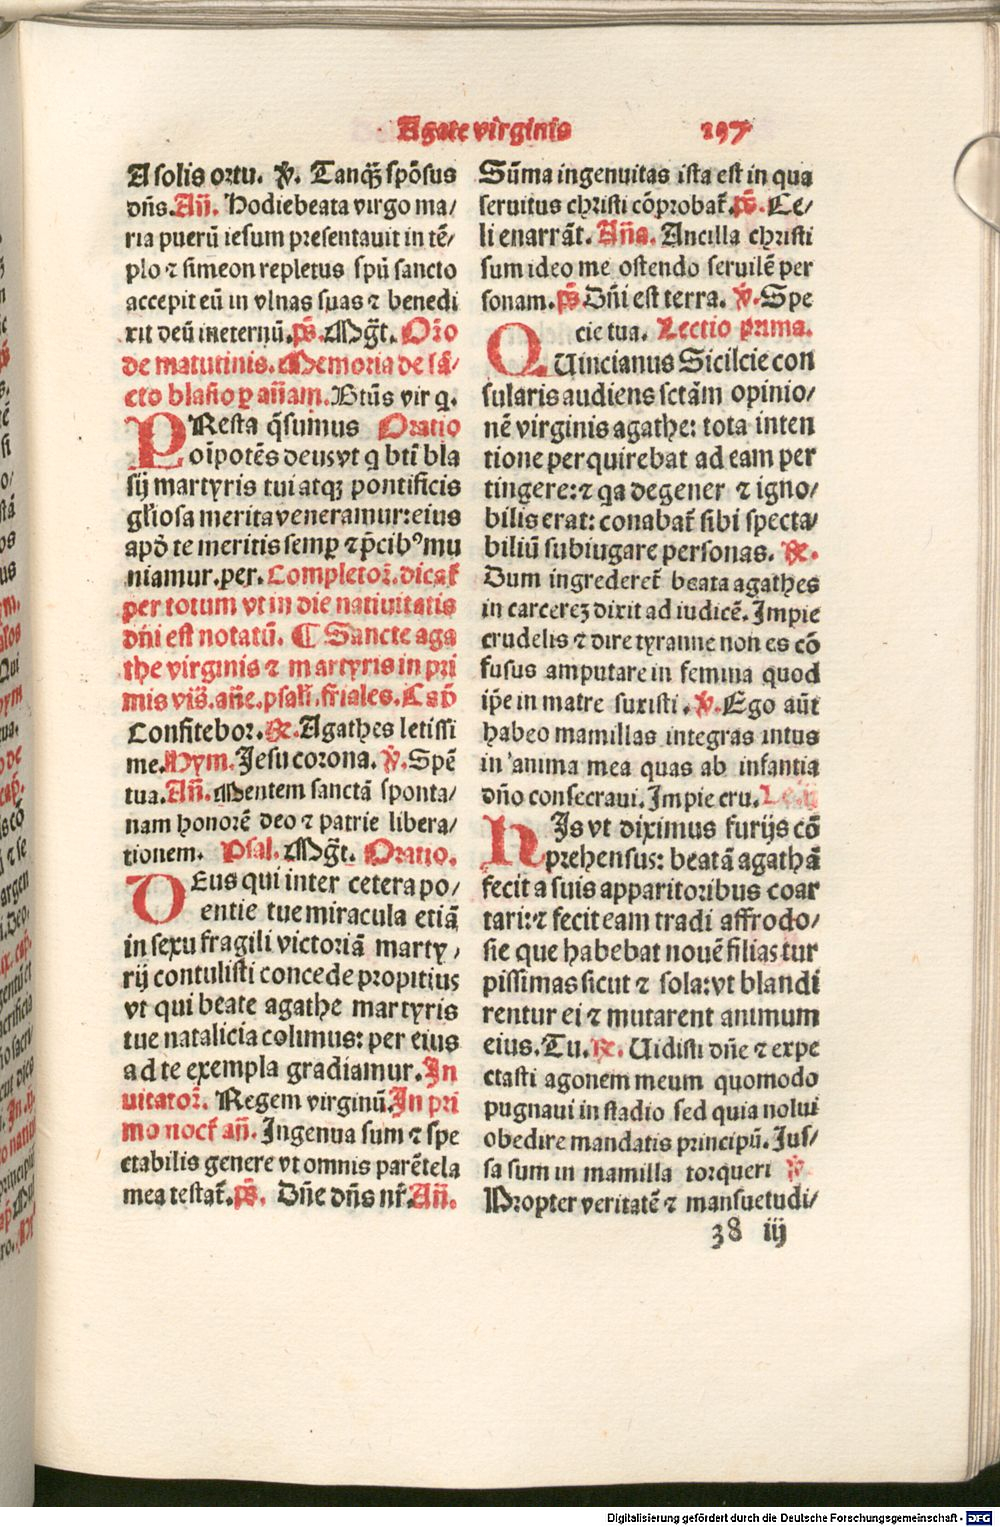 Agate virginis 197
A solis ortu. ℣. Tanq̃ʒ spõsus
dñs. Añ. Hodiebeata virgo ma/
ria puerũ iesum presentauit in tẽ/
plo ⁊ simeon repletus spũ sancto
accepit eũ in vlnas suas ⁊ benedi
xit deũ ineternũ. p̃s. Mg̃t. Or̃o
de matutinis. Memoria de sã/
cto blasio ꝑ añam. Etũs vir q.
PResta q̃sumus Oratio
oĩpotẽs deus vt q btĩ bla
sij martyris tui atqʒ pontificis
gl̃iosa merita veneramur: eius
apđ te meritis semꝑ ⁊ p̃cibꝰ mu
niamur. per. Completoꝛ̃. dicat̃
per totum vt in die natiuitatis
dñi est notatũ. ¶ Sancte aga
the virginis ⁊ martyris in pri
mis vis̃. añe. psal̃i. fr̃iales. Cap̃
Confitebor. ℟. Agathes letissi
me. Hym. Jesu corona. ℣. Spẽ
tua. Añ. Mentem sanctã sponta/
nam honorẽ deo ⁊ patrie libera/
tionem. Psal. Mg̃t. Oratio.
DEus qui inter cetera po/
entie tue miracula etiã
in sexu fragili victoriã marty/
rij contulisti concede propitius
vt qui beate agathe martyris
tue natalicia colimus: per eius
ad te exempla gradiamur. In
uitatoꝛ̃. Regem virginũ. In pri
mo noct̃ añ. Ingenua sum ⁊ spe
ctabilis genere vt omnis parẽtela
mea testat̃. p̃s. Dñe dñs nr̃. Añ.
Sũma ingenuitas ista est in qua
seruitus christi cõprobat̃. p̃s. Ce/
li enarrãt. Añs. Ancilla christi
sum ideo me ostendo seruilẽ per
sonam. p̃s Dñi est terra. ℣. Spe
cie tua. Lectio prima.
QUincianus Sicilcie con
sularis audiens sctãm opinio/
nẽ virginis agathe: tota inten
tione perquirebat ad eam per
tingere: ⁊ qa degener ⁊ igno/
bilis erat: conabat̃ sibi specta/
biliũ subiugare personas. ℟.
Dum ingrederet̃ beata agathes
in carcereʒ dixit ad iudicẽ. Impie
crudelis ⁊ dire tyranne non es cõ
fusus amputare in femina quod
ip̃e in matre suxisti. ℣. Ego aũt
habeo mamillas integras intus
in anima mea quas ab infantia
dño consecraui. Impie cru. Le. ij
HJs vt diximus furijs cõ
prehensus: beatã agathã
fecit a suis apparitoribus coar
tari: ⁊ fecit eam tradi affrodo/
sie que habebat nouẽ filias tur
pissimas sicut ⁊ sola: vt blandi
rentur ei ⁊ mutarent animum
eius. Tu. ℟. Uidisti dñe ⁊ expe
ctasti agonem meum quomodo
pugnaui in stadio sed quia nolui
obedire mandatis principũ. Jus/
sa sum in mamilla torqueri ℣.
Propter veritatẽ ⁊ mansuetudi/
38 iij
Digitalisierung gefördert durch die Deutsche Forschungsgemeinschaft - DFG